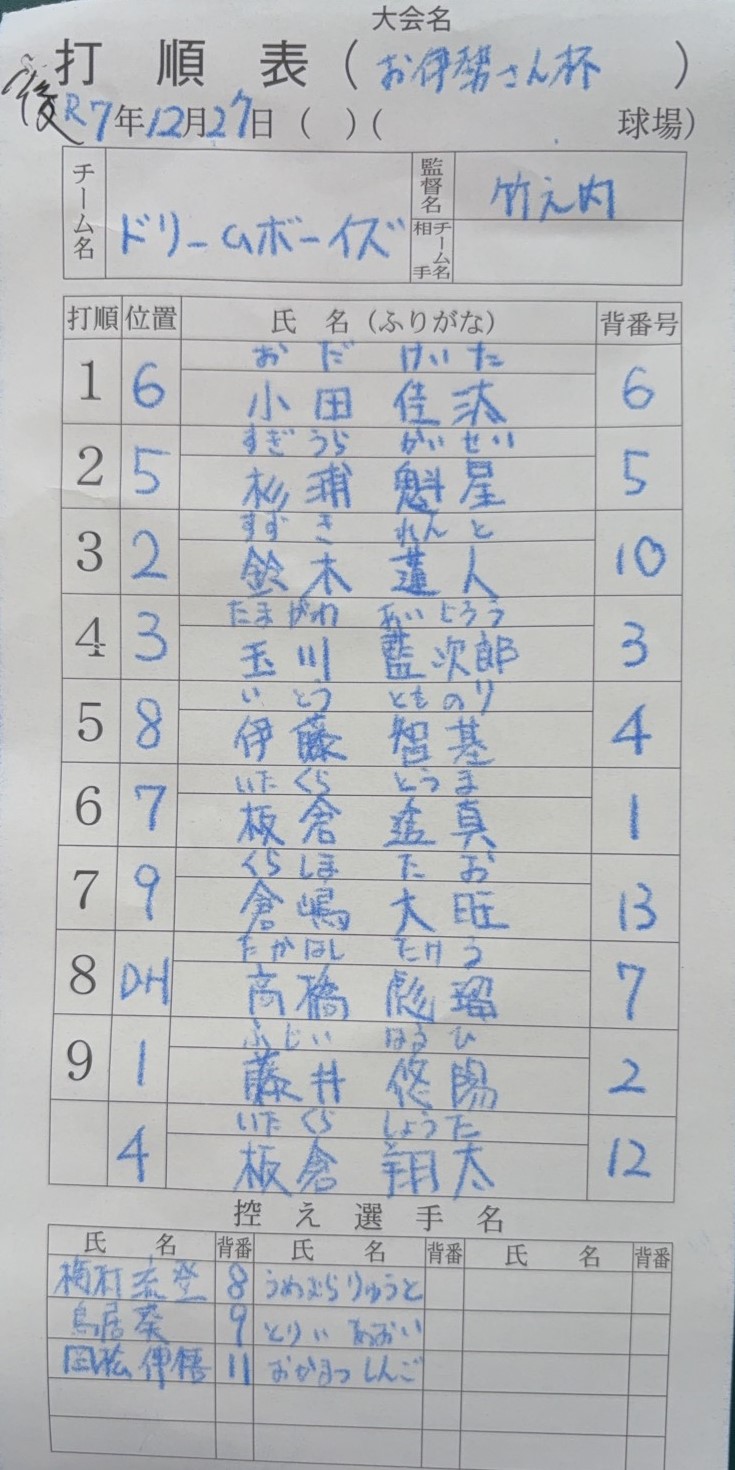 大会名
打順表(お伊勢さん杯)
後 R7年12月27日( )( 球場)
チーム名 ドリームボーイズ 監督名 竹之内
相手チーム名
打順 位置 氏名(ふりがな) 背番号
おだ けいた
1 6 小田 佳汰 6
すぎうら かいせい
2 5 杉浦 魁星 5
すずき れんと
3 2 鈴木 蓮人 10
たまがわ あいじろう
4 3 玉川 藍次郎 3
いとう とものり
5 8 伊藤 智基 4
いたくら とうま
6 7 板倉 透真 1
くらしま たお
7 9 倉嶋 大旺 13
たかはし たける
8 DH 高橋 彪瑠 7
ふじい はるひ
9 1 藤井 悠陽 2
いたくら しょうた
4 板倉 翔太 12
控え選手名
氏名 背番 氏名 背番 氏名 背番
梅村流登 8 うめむらりゅうと
鳥居葵 9 とりいあおい
岡松伸悟 11 おかまつしんご